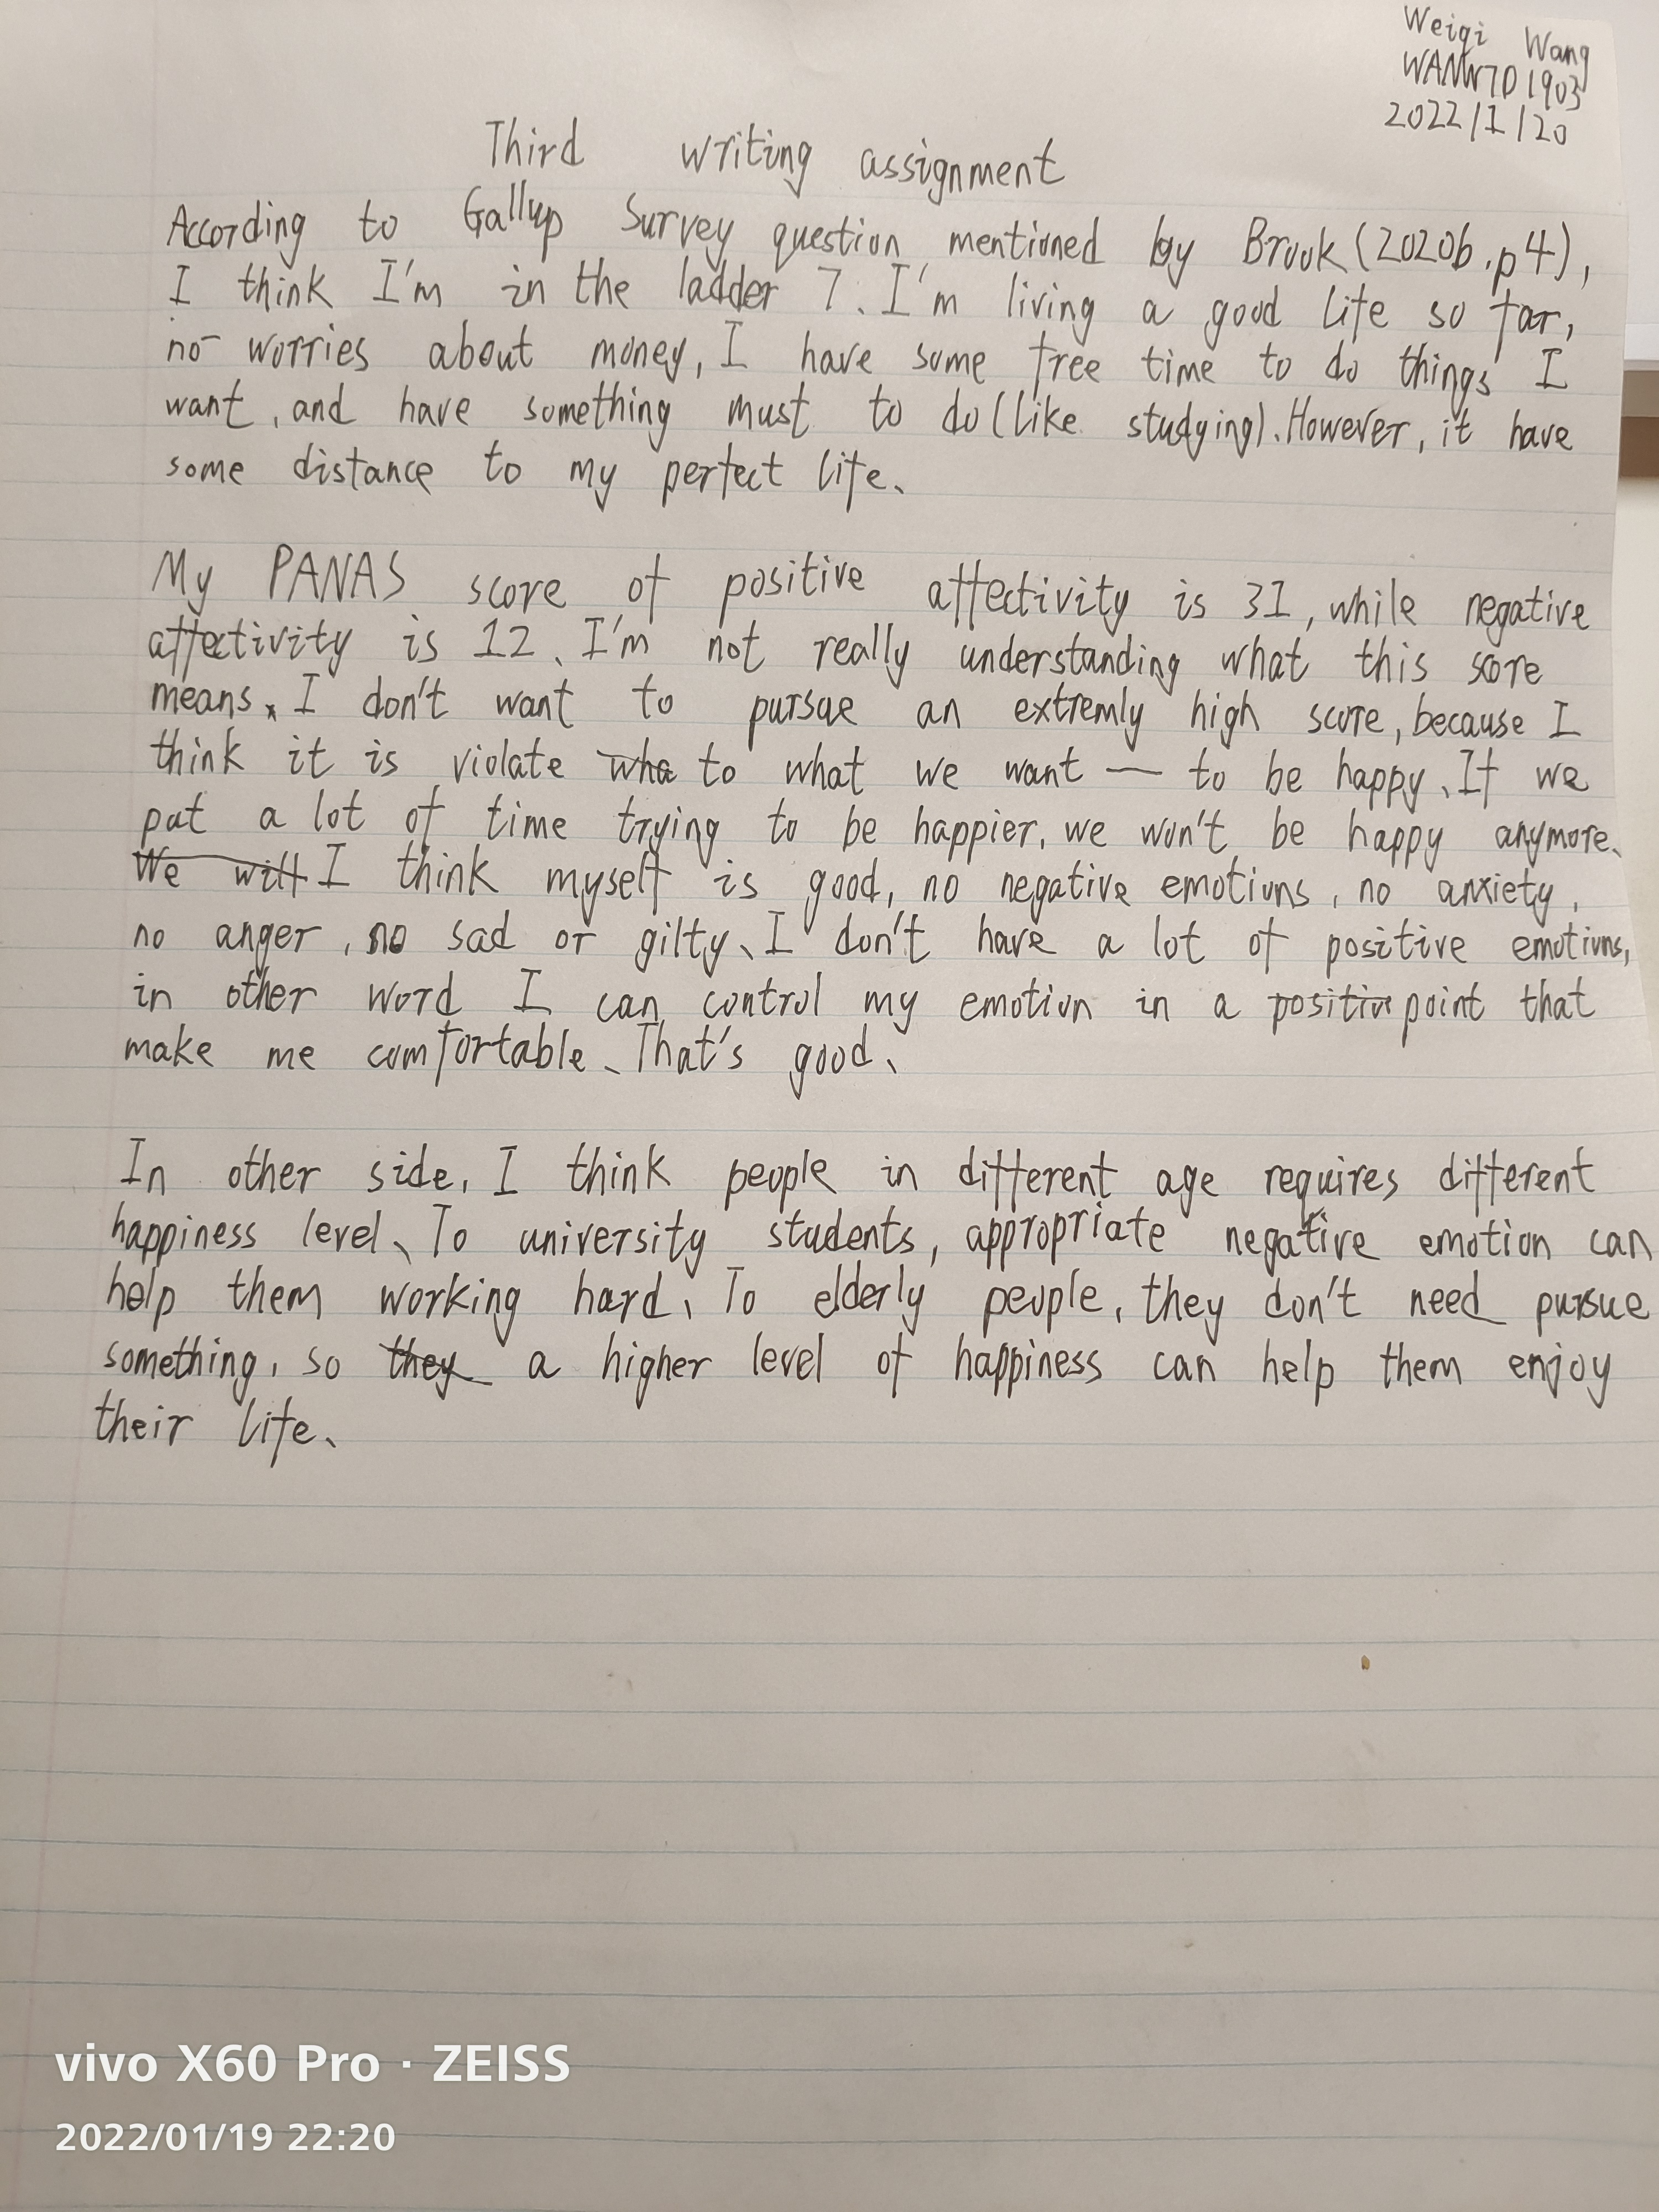 Weiqi Wang
WANW7D1903
2022/1/20
Third writing assignment
According to Gallup Survey question mentioned by Brook (2020b, p4),
I think I'm in the ladder 7. I'm living a good life so far,
no worries about money, I have some free time to do things I
want, and have something must to do (like studying). However, it have
some distance to my perfect life.
My PANAS score of positive affectivity is 31, while negative
affectivity is 12. I'm not really understanding what this score
means. I don't want to pursue an extremly high score, because I
think it is violate wha to what we want — to be happy. If we
put a lot of time trying to be happier, we won't be happy anymore.
We will I think myself is good, no negative emotions, no anxiety,
no anger, no sad or gilty. I don't have a lot of positive emotions,
in other word I can control my emotion in a positive point that
make me comfortable. That's good.
In other side, I think people in different age requires different
happiness level. To university students, appropriate negative emotion can
help them working hard. To elderly people, they don't need pursue
something, so they a higher level of happiness can help them enjoy
their life.
vivo X60 Pro · ZEISS
2022/01/19 22:20